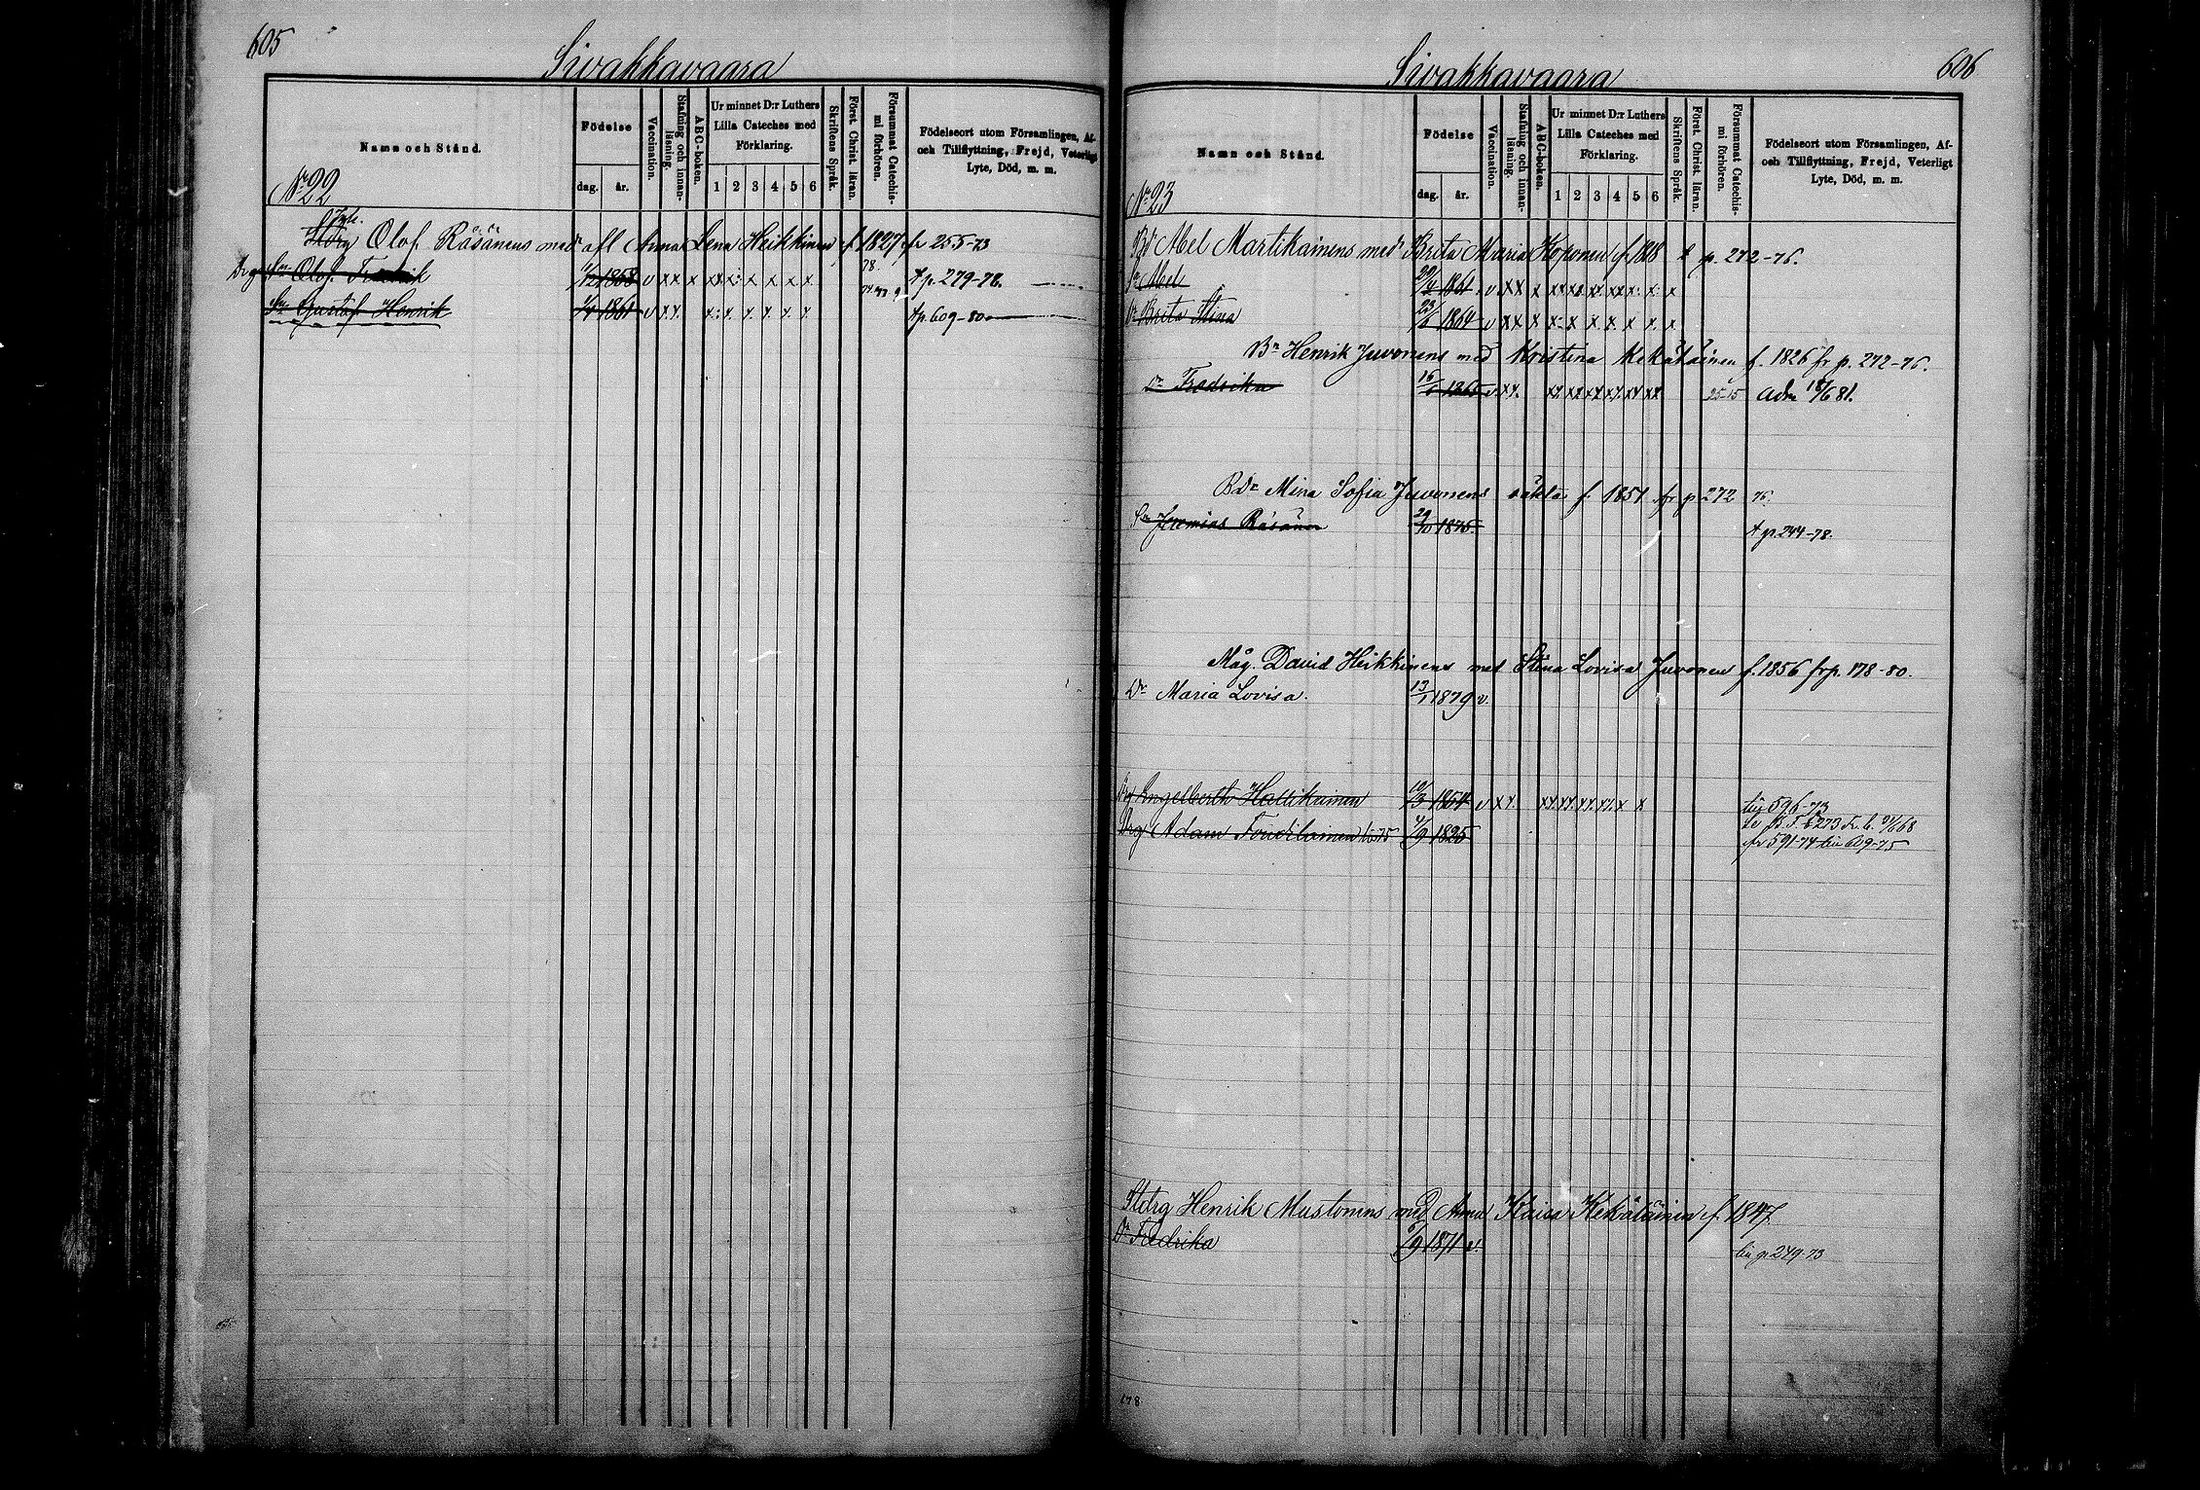 605
Sivakkavaara
Namn och Stånd.
Födelse
dag.
år.
Vaccination.
Stafning och innan-läsning.
ABC-boken.
Ur minnet D:r Luthers Lilla Cateches med Förklaring.
1 2 3 4 5 6
Skriftens Språk.
Först. Christ. läran.
Försummat Catechis-mi förhören.
Födelseort utom Församlingen, Af- och Tillflyttning, Frejd, Veterligt Lyte, Död, m. m.
No 22
Olof Räsänens med afl Anna Lena Heikkinen f. 1827 fr 255-73
Drg Sn Olof Fredrik 1858 v xx x xx x: x x x x 78. p. 279-78.
Sn Gustaf Henrik 1861 v x x. x: x. x x. x. x p. 609-80
606
Sivakkavaara
Namn och Stånd.
Födelse
dag.
år.
Vaccination.
Stafning och innan-läsning.
ABC-boken.
Ur minnet D:r Luthers Lilla Cateches med Förklaring.
1 2 3 4 5 6
Skriftens Språk.
Först. Christ. läran.
Försummat Catechis-mi förhören.
Födelseort utom Församlingen, Af- och Tillflyttning, Frejd, Veterligt Lyte, Död, m. m.
No 23
Abel Martikainens med Brita Maria Koponen f. 1818 p. 272-76.
Sn Abel 1861 v xx x xx xx xx xx x: x: x
Dr Brita Stina 1864 v xx x x: x x x x x x
Bn Henrik Juvonens med Kristina Kekäläinen f. 1826 fr p. 272-76.
Dr Fredrika 1865 v xx. xx xx xx xx xx xx 25 15 adm 18/6 81.
BDr Mina Sofia Juvonens oäkta f. 1851 fr p 272 76.
Sn Jeremias Räsänen 29/10 1875 p. 244-78.
Måg. David Heikkinens med Stina Lovisa Juvonen f. 1856 fr p. 178-80.
Dr Maria Lovisa. 13/1 1879 v.
Engelberth Hallikainen 1854 v x x. xx xx xx xx. x x 596-73
Drg Adam 4/9 1825 591-74 609-75
Stdrg Henrik Mustonens med Anna Kaisa Kekäläinen f. 1847.
Dr Fredrika 1871 v. p 249-73
178